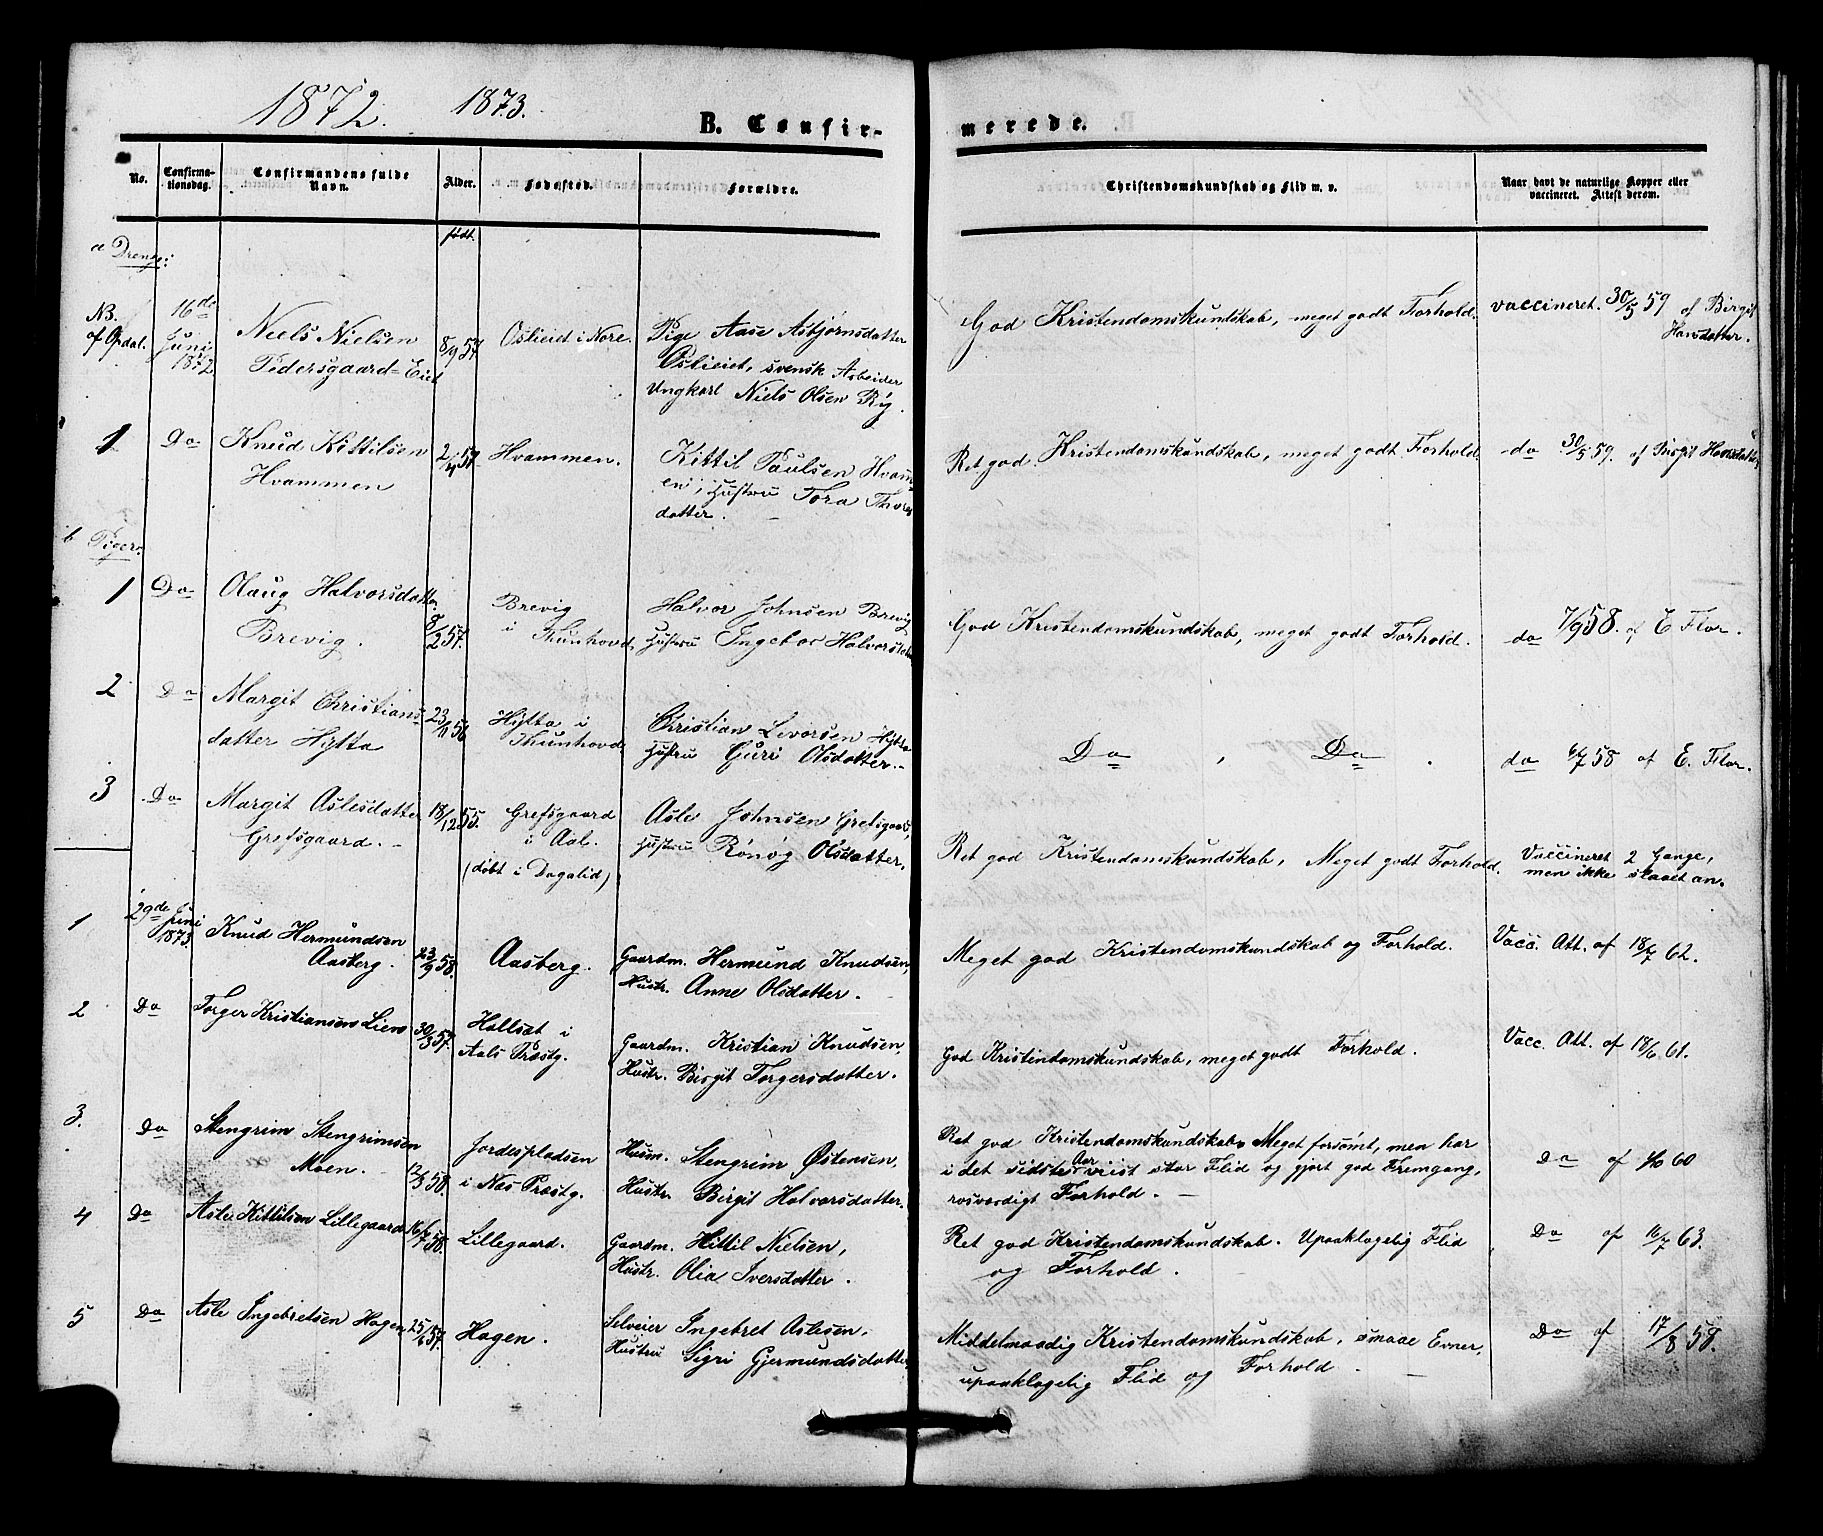 1872. 1873.
B. Confirmerede.
No. Confirmationsdag. Confirmandens fulde Navn. Alder. Fødested. Forældre. Christendomskundskab og Flid m. v. Naar havt de naturlige Kopper eller vaccineret. Attest derom.
født
a Drenge:
NB. af Opdal. 16de Juni 1872 Niels Nielsen Pedersgaard-Eiet 8/9 57. Oslieiet i Nore. Pige Aase Asbjørnsdatter Oslieiet, svensk Arbeider Ungkarl Niels Olsen Ry. God Kristendomskundskab, meget godt Forhold. vaccineret. 30/5 59 af Birgit Hansdatter.
1 Do Knud Kittilsen Hvammen 2/4 57. Hvammen. Kittil Paulsen Hvammen, Hustru Tora Thoresdatter. Ret god Kristendomskundskab, meget godt Forhold. do 30/5 59. af Birgit Hansdatter
b Piger.
1 Do Olaug Halvorsdatter Brevig. 8/2 57. Brevig i Thunhovd. Halvor Johnsen Brevig Hustru Ingebor Halvorsdatter God Kristendomskundskab, meget godt Forhold. do 7/9 58. af E Flor.
2 Do Margit Christiansdatter Hytta 23/11 56 Hytta i Thunhovd Christian Livorsen Hytta Hustru Guri Olsdatter. Do , Do . do 6/7 58 af E. Flor.
3 Do Margit Aslesdatter Grefsgaard. 18/12 55. Grefsgaard i Aal. (døbt i Dagalid) Asle Johnsen Grefsgaard, Hustru Rønøg Olsdatter. Ret god Kristendomskundskab, Meget godt Forhold. Vaccineret 2 Gange, men ikke slaaet an.
1 29de Juni 1873. Knud Hermundsen Aasberg. 23/9 58. Aasberg. Gaardm. Hermund Knudsen, Hustr. Anne Olsdatter. Meget god Kristendomskundskab og Forhold. Vacc. Att. af 18/7 62.
2 Do Torger Kristiansen Lien 30/3 57. Hallsat i Aals Præstg. Gaardm. Kristian Knudsen, Hustr. Birgit Torgersdatter. God Kristendomskundskab, meget godt Forhold. Vacc. Att. af 18/6 61.
3. Do Stengrim Stengrimsen Moen. 12/3 58. Jordespladsen i Næs Præstg. Husm. Stengrim Østensen, Hustr. Birgit Halvorsdatter. Ret god Kristendomskundskab. Meget forsømt, men har i det sidste Aar viist stor Flid og gjort god Fremgang, rosværdigt Forhold. Do af 1/10 60
4 Do Asle Kittilsen Lillegaard 16/7 58. Lillegaard. Gaardm. Kittil Nielsen, Hustr. Olia Iversdatter. Ret god Kristendomskundskab. Upaaklagelig Flid og Forhold. Do af 16/7 63.
5 Do Asle Ingebretsen Hagen 25/6 57. Hagen. Selveier Ingebret Aslesen, Hustru Sigri Gjermundsdatter Middelmaadig Kristendomskundskab, smaae Evner, upaaklagelig Flid og Forhold Do af 17/8 58.